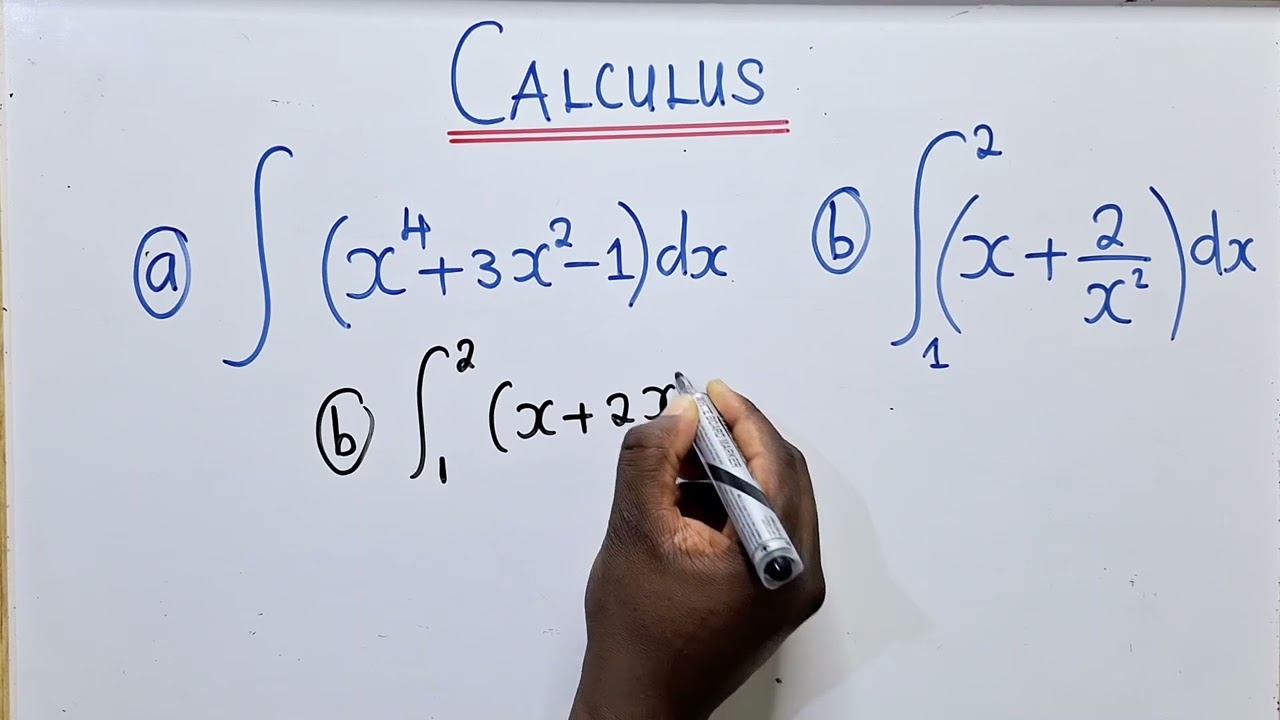 CALCULUS
ⓐ ∫ (x⁴+3x²-1)dx
ⓑ ∫₁² (x + 2/x²) dx
ⓑ ∫₁² (x+2x